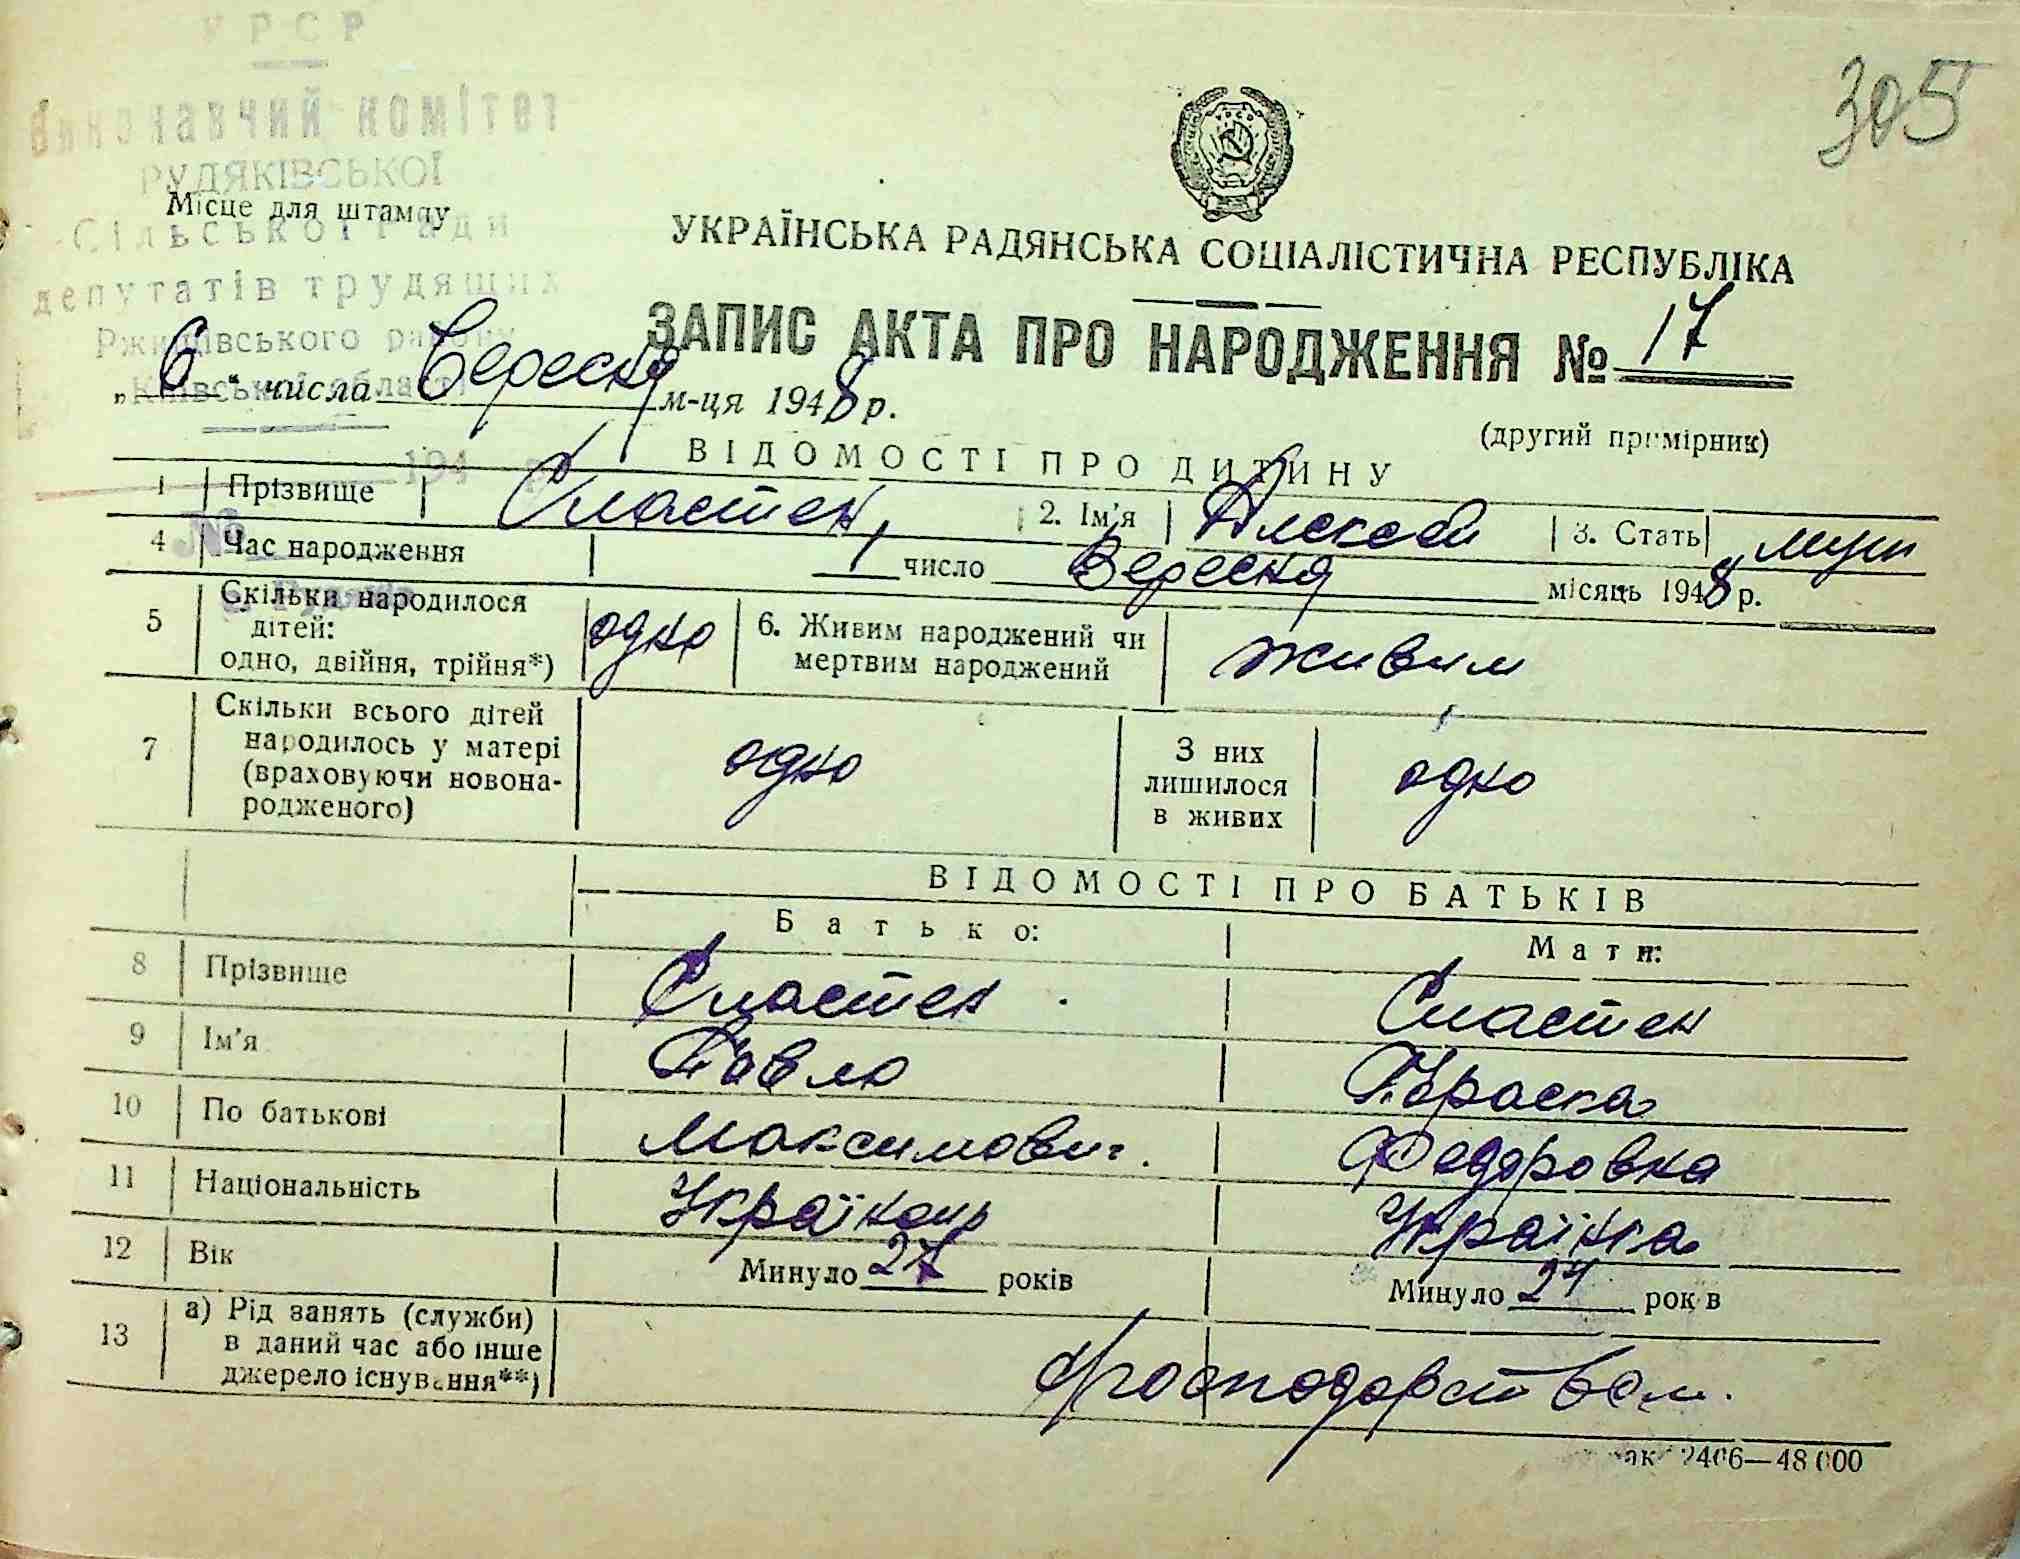 УРСР
Виконавчий комітет
РУДЯКІВСЬКОЇ
Місце для штампу
Сільської Ради
депутатів трудящих
Ржищівського району
Київської області
194
№
305
УКРАЇНСЬКА РАДЯНСЬКА СОЦІАЛІСТИЧНА РЕСПУБЛІКА
ЗАПИС АКТА ПРО НАРОДЖЕННЯ № 17
„ 6 “ числа Вересня м-ця 1948 р.
(другий примірник)
ВІДОМОСТІ ПРО ДИТИНУ
1 Прізвище Сластен 2. Ім'я Алексей 3. Стать муж
4 Час народження 1 число Вересня місяць 1948 р.
5 Скільки народилося дітей: одно, двійня, трійня*) одно 6. Живим народжений чи мертвим народжений живим
7 Скільки всього дітей народилось у матері (враховуючи новонародженого) одно З них лишилося в живих одно
ВІДОМОСТІ ПРО БАТЬКІВ
Батько: Мати:
8 Прізвище Сластен Сластен
9 Ім'я Павло Параска
10 По батькові Максимович. Федоровка
11 Національність Українець Українка
12 Вік Минуло 27 років Минуло 24 років
13 а) Рід занять (служби) в даний час або інше джерело існування**) господарством.
2406—48 000